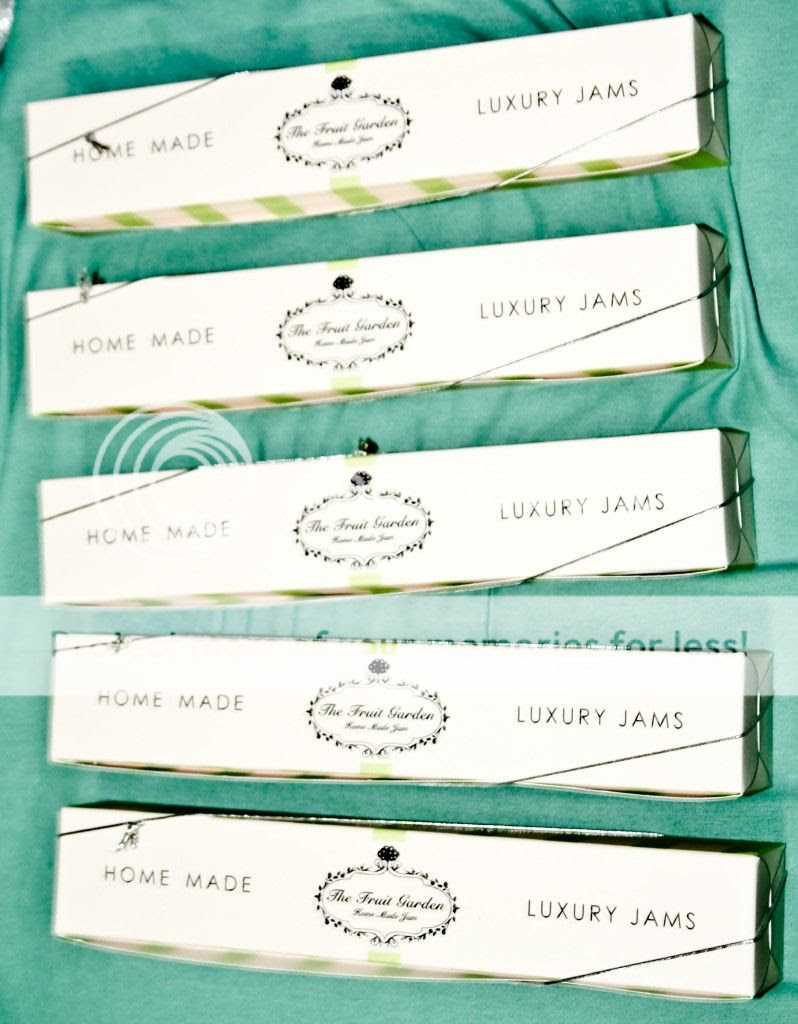 HOME MADE
The Fruit Garden
Home Made Jam
LUXURY JAMS
HOME MADE
The Fruit Garden
Home Made Jam
LUXURY JAMS
HOME MADE
The Fruit Garden
Home Made Jam
LUXURY JAMS
of your memories for less!
HOME MADE
The Fruit Garden
Home Made Jam
LUXURY JAMS
HOME MADE
The Fruit Garden
Home Made Jam
LUXURY JAMS